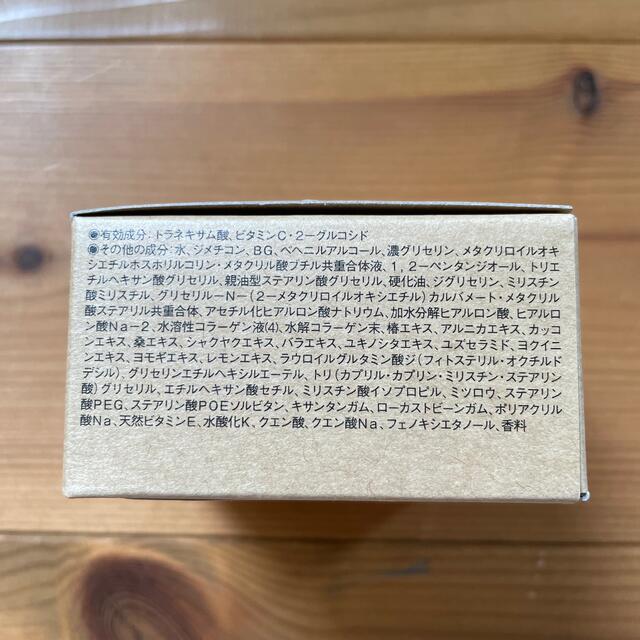 ◉有効成分：トラネキサム酸、ビタミンC・2−グルコシド
◉その他の成分：水、ジメチコン、BG、ベヘニルアルコール、濃グリセリン、メタクリロイルオキ
シエチルホスホリルコリン・メタクリル酸ブチル共重合体液、1，2−ペンタンジオール、トリエ
チルヘキサン酸グリセリル、親油型ステアリン酸グリセリル、硬化油、ジグリセリン、ミリスチン
酸ミリスチル、グリセリル−N−（2−メタクリロイルオキシエチル）カルバメート・メタクリル
酸ステアリル共重合体、アセチル化ヒアルロン酸ナトリウム、加水分解ヒアルロン酸、ヒアルロ
ン酸Na−2、水溶性コラーゲン液(4)、水解コラーゲン末、椿エキス、アルニカエキス、カッコ
ンエキス、桑エキス、シャクヤクエキス、バラエキス、ユキノシタエキス、ユズセラミド、ヨクイニ
ンエキス、ヨモギエキス、レモンエキス、ラウロイルグルタミン酸ジ（フィトステリル・オクチルド
デシル）、グリセリンエチルヘキシルエーテル、トリ（カプリル・カプリン・ミリスチン・ステアリン
酸）グリセリル、エチルヘキサン酸セチル、ミリスチン酸イソプロピル、ミツロウ、ステアリン
酸PEG、ステアリン酸POEソルビタン、キサンタンガム、ローカストビーンガム、ポリアクリル
酸Na、天然ビタミンE、水酸化K、クエン酸、クエン酸Na、フェノキシエタノール、香料